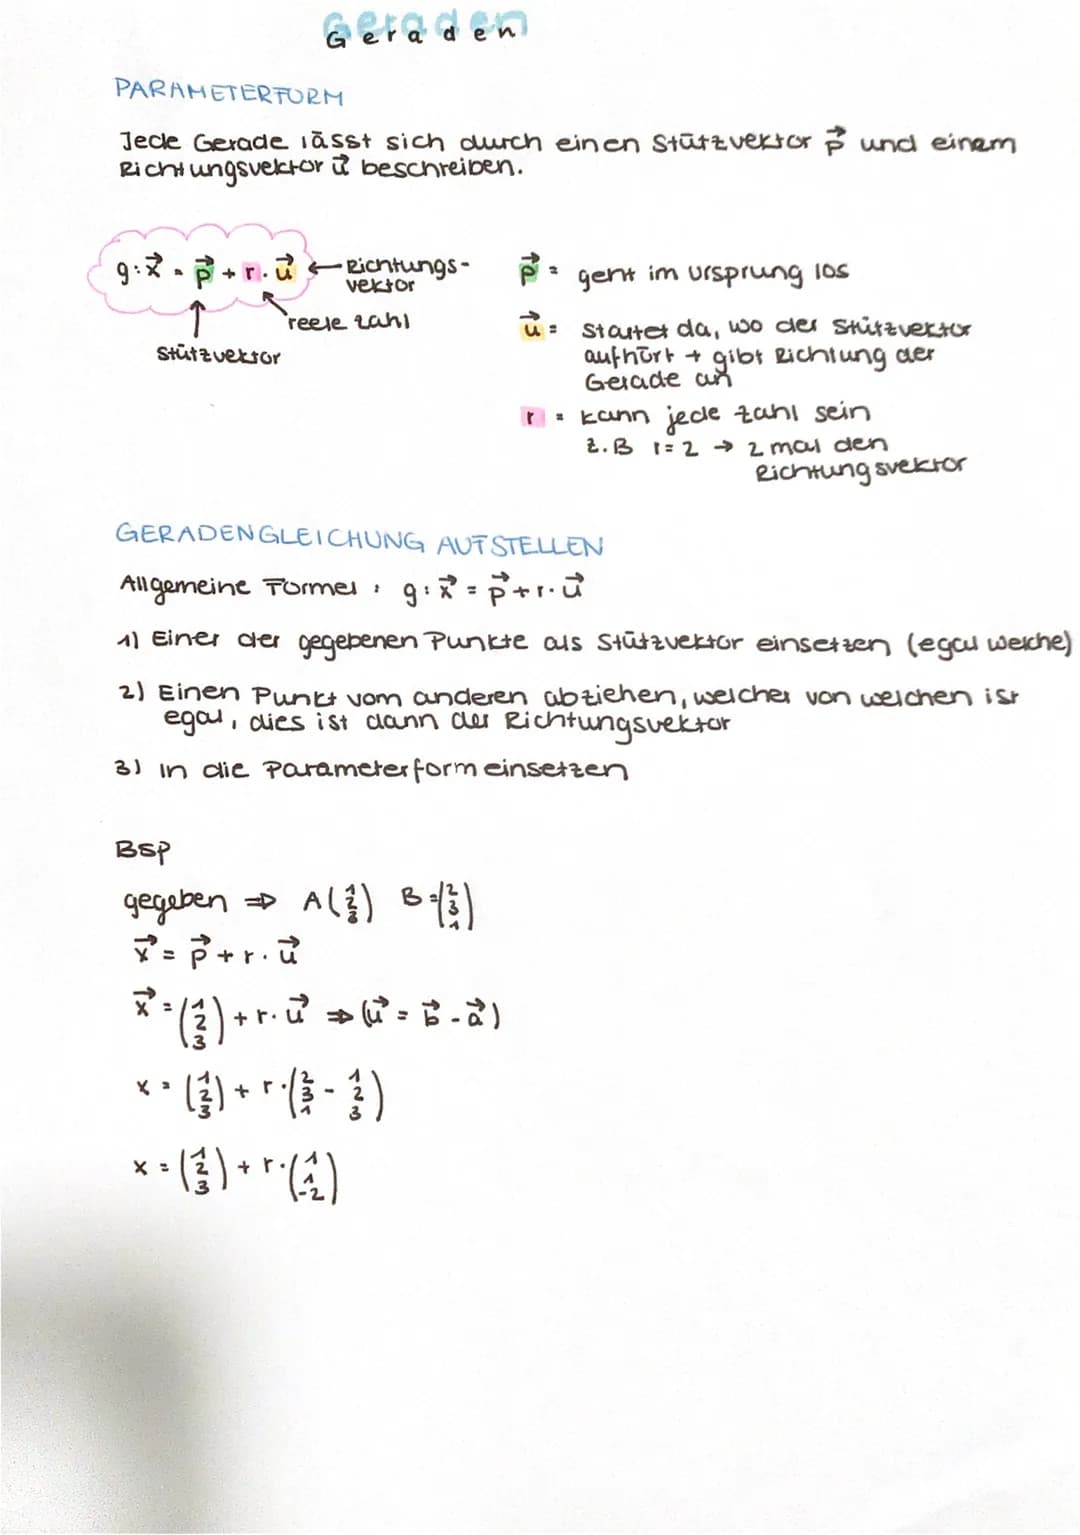 Geraden
PARAMETERFORM
Jede Gerade lässt sich durch einen Stützvektor p⃗ und einem
Richtungsvektor u⃗ beschreiben.
g: x⃗ = p⃗ + r · u⃗ ← Richtungs-
vektor
reele Zahl
Stützvektor
p⃗ = geht im Ursprung los
u⃗ = Startet da, wo der Stützvektor
aufhört + gibt Richtung der
Gerade an
r = kann jede Zahl sein
z.B r = 2 → 2 mal den
Richtungsvektor
GERADENGLEICHUNG AUFSTELLEN
Allgemeine Formel : g: x⃗ = p⃗ + r · u⃗
1) Einer der gegebenen Punkte als Stützvektor einsetzen (egal welche)
2) Einen Punkt vom anderen abziehen, welcher von welchen ist
egal, dies ist dann der Richtungsvektor
3) in die Parameterform einsetzen
BSP
gegeben ⇒ A (1 2 3) B = (2 3 1)
x⃗ = p⃗ + r · u⃗
x⃗ = (1 2 3) + r · u⃗ ⇒ (u⃗ = b⃗ - a⃗)
x = (1 2 3) + r · (2 3 1 - 1 2 3)
x = (1 2 3) + r · (1 1 -2)